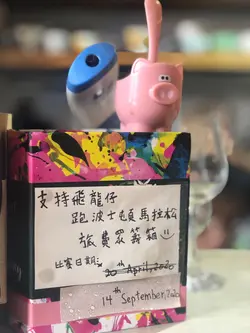 支持飛龍仔
跑波士頓馬拉松
旅費眾籌箱
比賽日期:
20th April, 2020
14th September, 2020